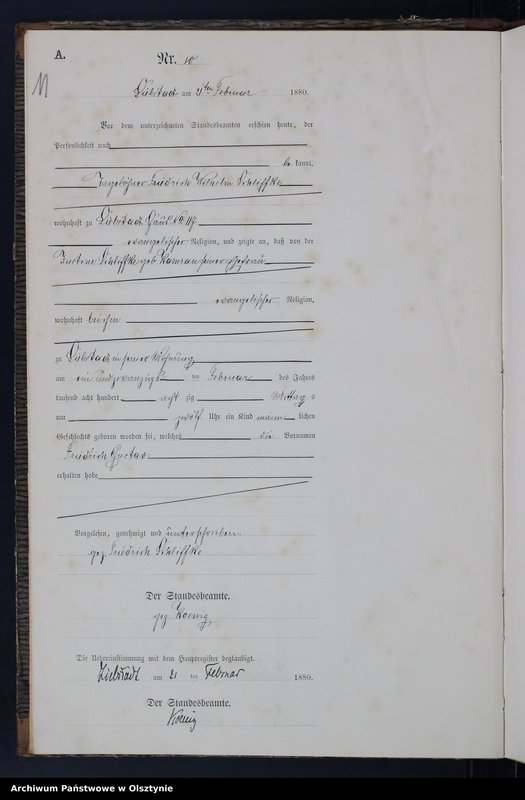 A.
Nr. 10
11
Liebstadt am 21ten Februar 1880.
Vor dem unterzeichneten Standesbeamten erschien heute, der
Persönlichkeit nach
be kannt,
Friedrich Wilhelm Schliffke
wohnhaft zu Liebstadt Haus No 117
evangelischer Religion, und zeigte an, daß von der
Justine Schliffke geb. seiner Ehefrau
evangelischer Religion,
wohnhaft bei ihm
zu Liebstadt in seiner Wohnung
am ein und zwanzigs ten Februar des Jahres
tausend acht hundert acht zig Mittag s
um zwölf Uhr ein Kind männ lichen
Geschlechts geboren worden sei, welches die Vornamen
Friedrich Gustav
erhalten habe
Vorgelesen, genehmigt und unterschrieben
gez. Friedrich Schliffke
Der Standesbeamte.
gez. Koenig
Die Uebereinstimmung mit dem Hauptregister beglaubigt.
Liebstadt am 21 ten Februar 1880.
Der Standesbeamte.
Koenig
Archiwum Państwowe w Olsztynie